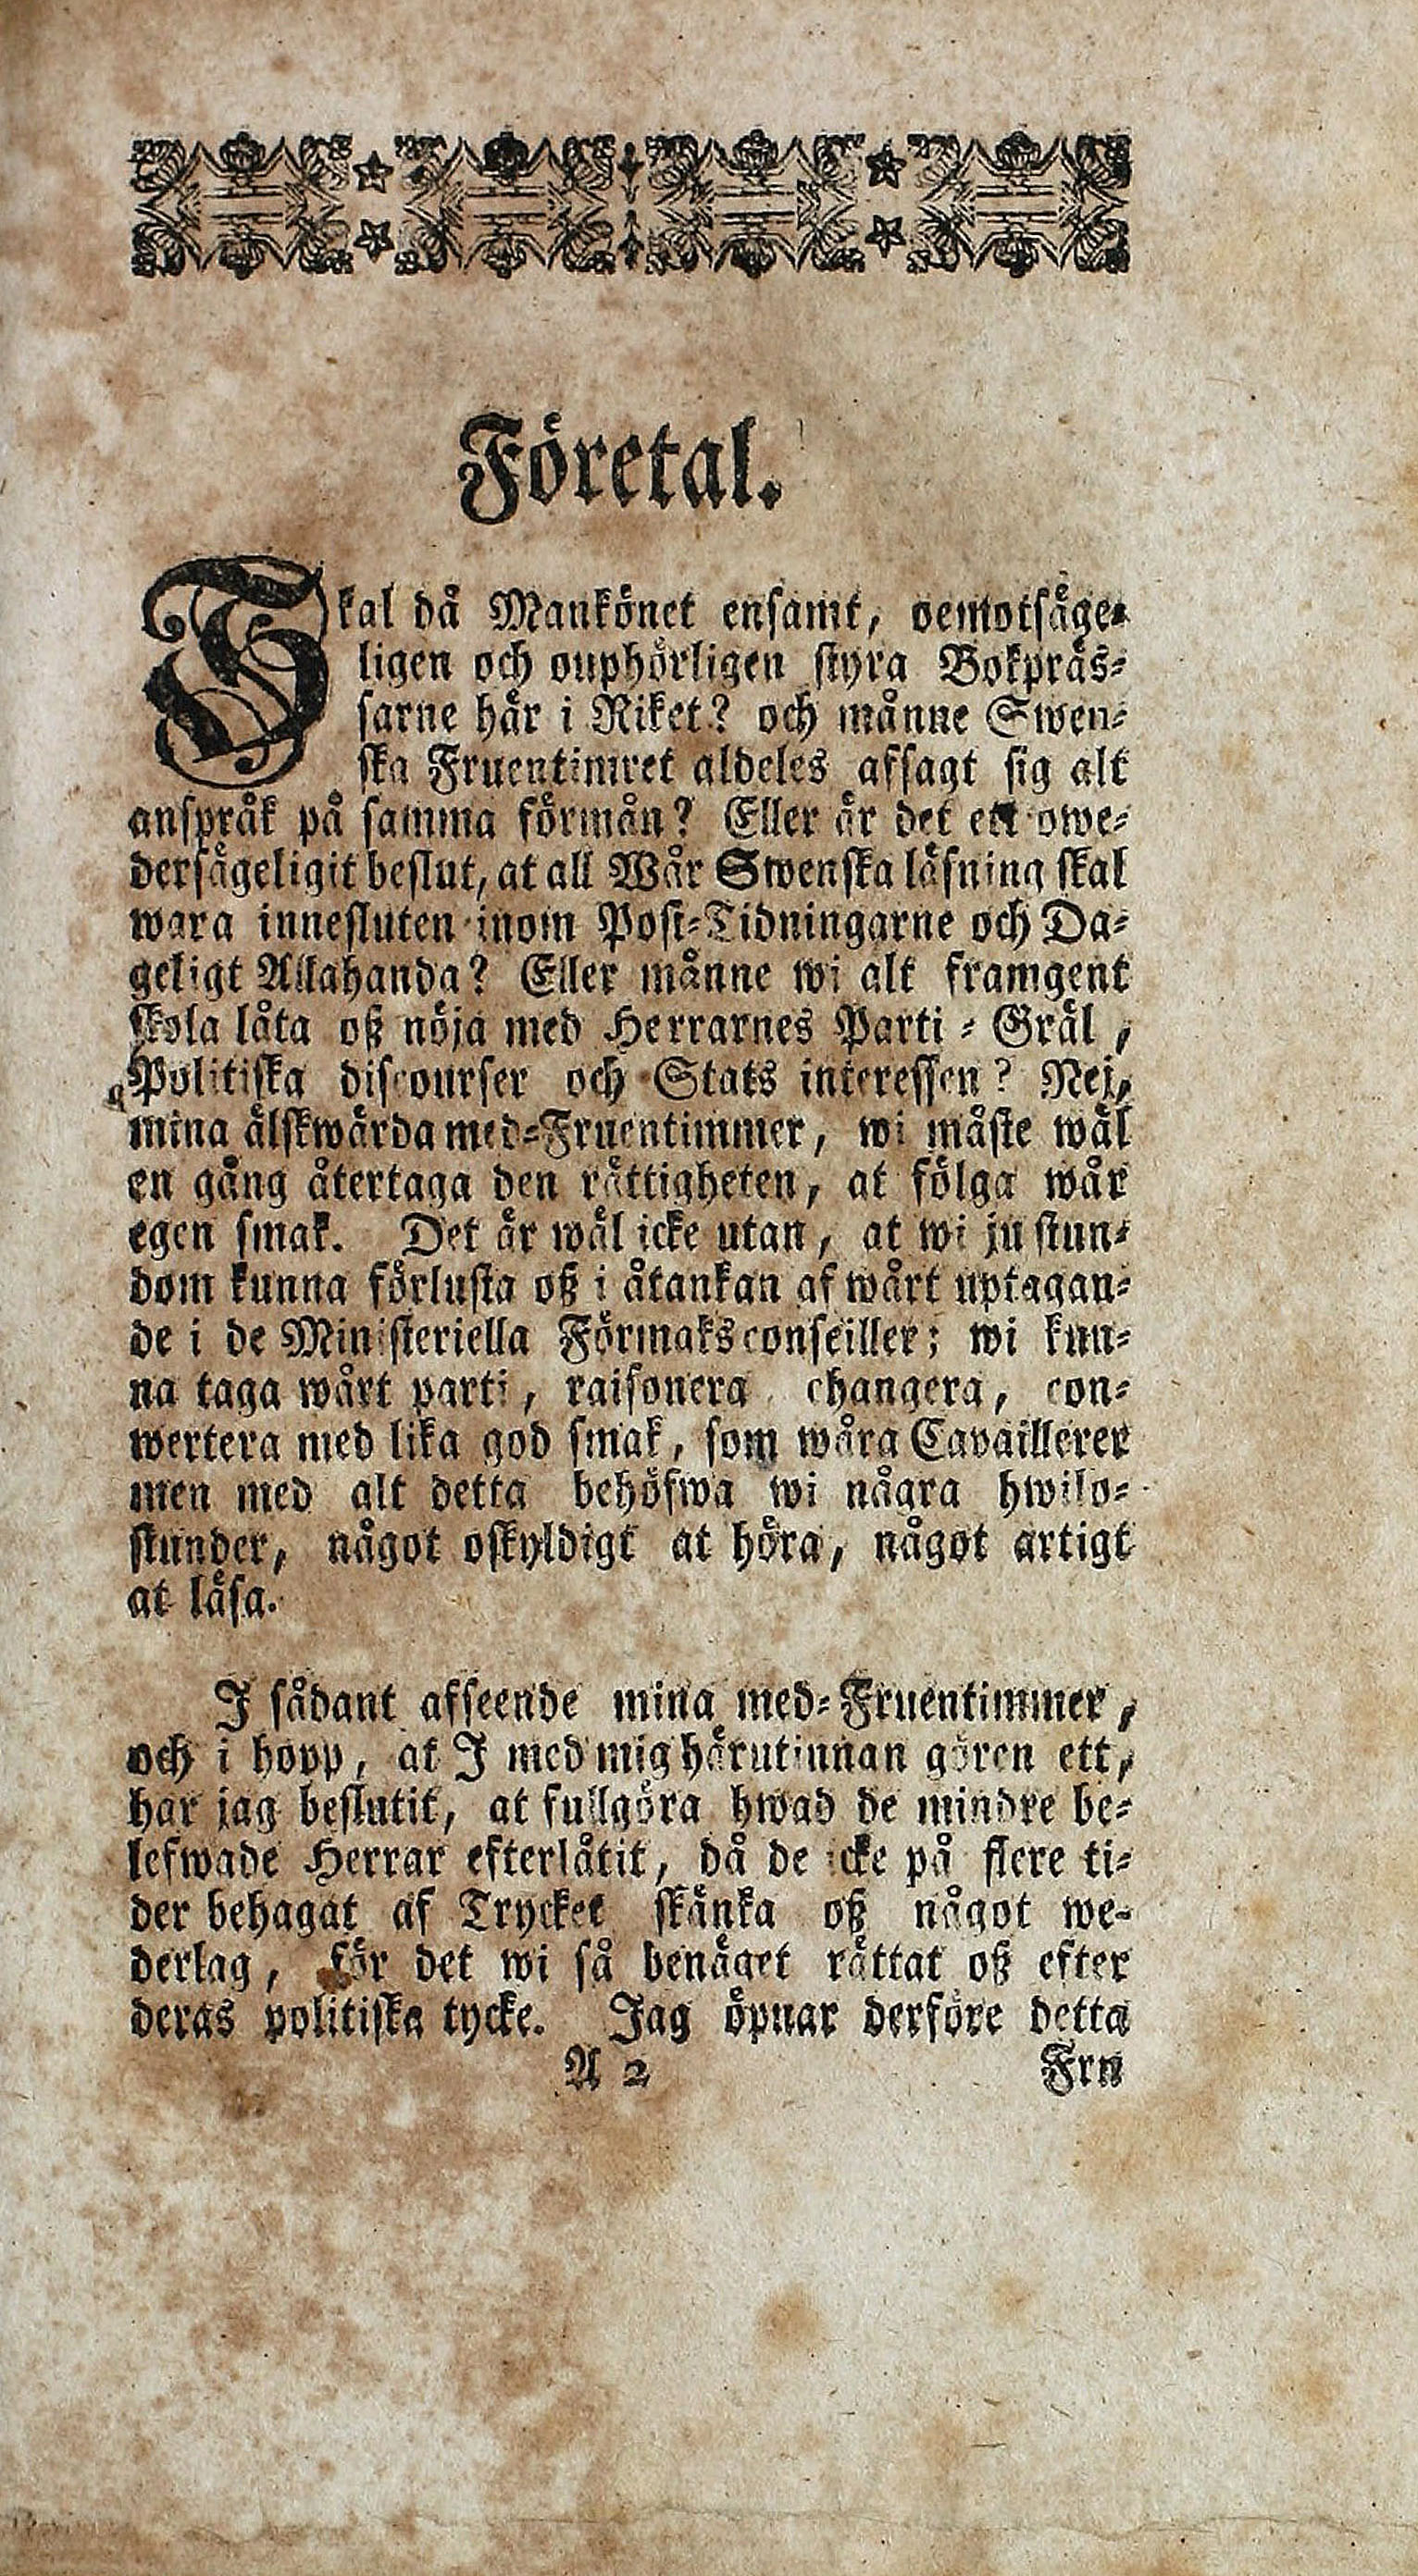 Företal.
Skal då Mankönet ensamt, oemotsäge-
ligen och ouphörligen styra Bokpräs-
sarne här i Riket? och månne Swen-
ska Fruentimret aldeles afsagt sig alt
anspråk på samma förmån? Eller är det ett owe-
dersägeligit beslut, at all Wår Swenska läsning skal
wara innesluten inom Post-Tidningarne och Da-
geligt Allahanda? Eller månne wi alt framgent
skola låta oß nöja med Herrarnes Parti-Gräl,
Politiska discourser och Stats interessen? Nej,
mina älskwärda med-Fruentimmer, wi måste wäl
en gång återtaga den rättigheten, at fölga wår
egen smak. Det är wäl icke utan, at wi ju stun-
dom kunna förlusta oß i åtankan af wårt uptagan-
de i de Ministeriella Förmaksconseiller; wi kun-
na taga wårt parti, raisonera changera, con-
wertera med lika god smak, som wåra Cavaillerer
men med alt detta behöfwa wi några hwilo-
stunder, något oskyldigt at höra, något artigt
at läsa.
I sådant afseende mina med-Fruentimmer,
och i hopp, at I med mig härutinnan gören ett,
har jag beslutit, at fullgöra hwad de mindre be-
lefwade Herrar efterlåtit, då de icke på flere ti-
der behagat af Trycket skänka oß något we-
derlag, för det wi så benäget rättat oß efter
deras politiska tycke. Jag öpnar derföre detta
A 2 Fru